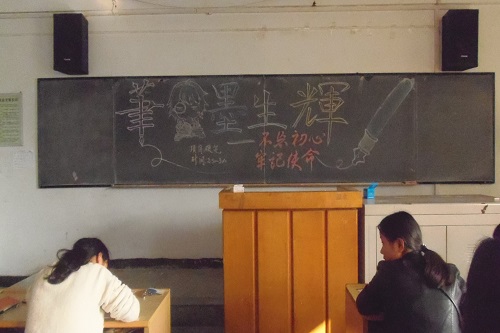 筆墨生輝
不忘初心
牢记使命